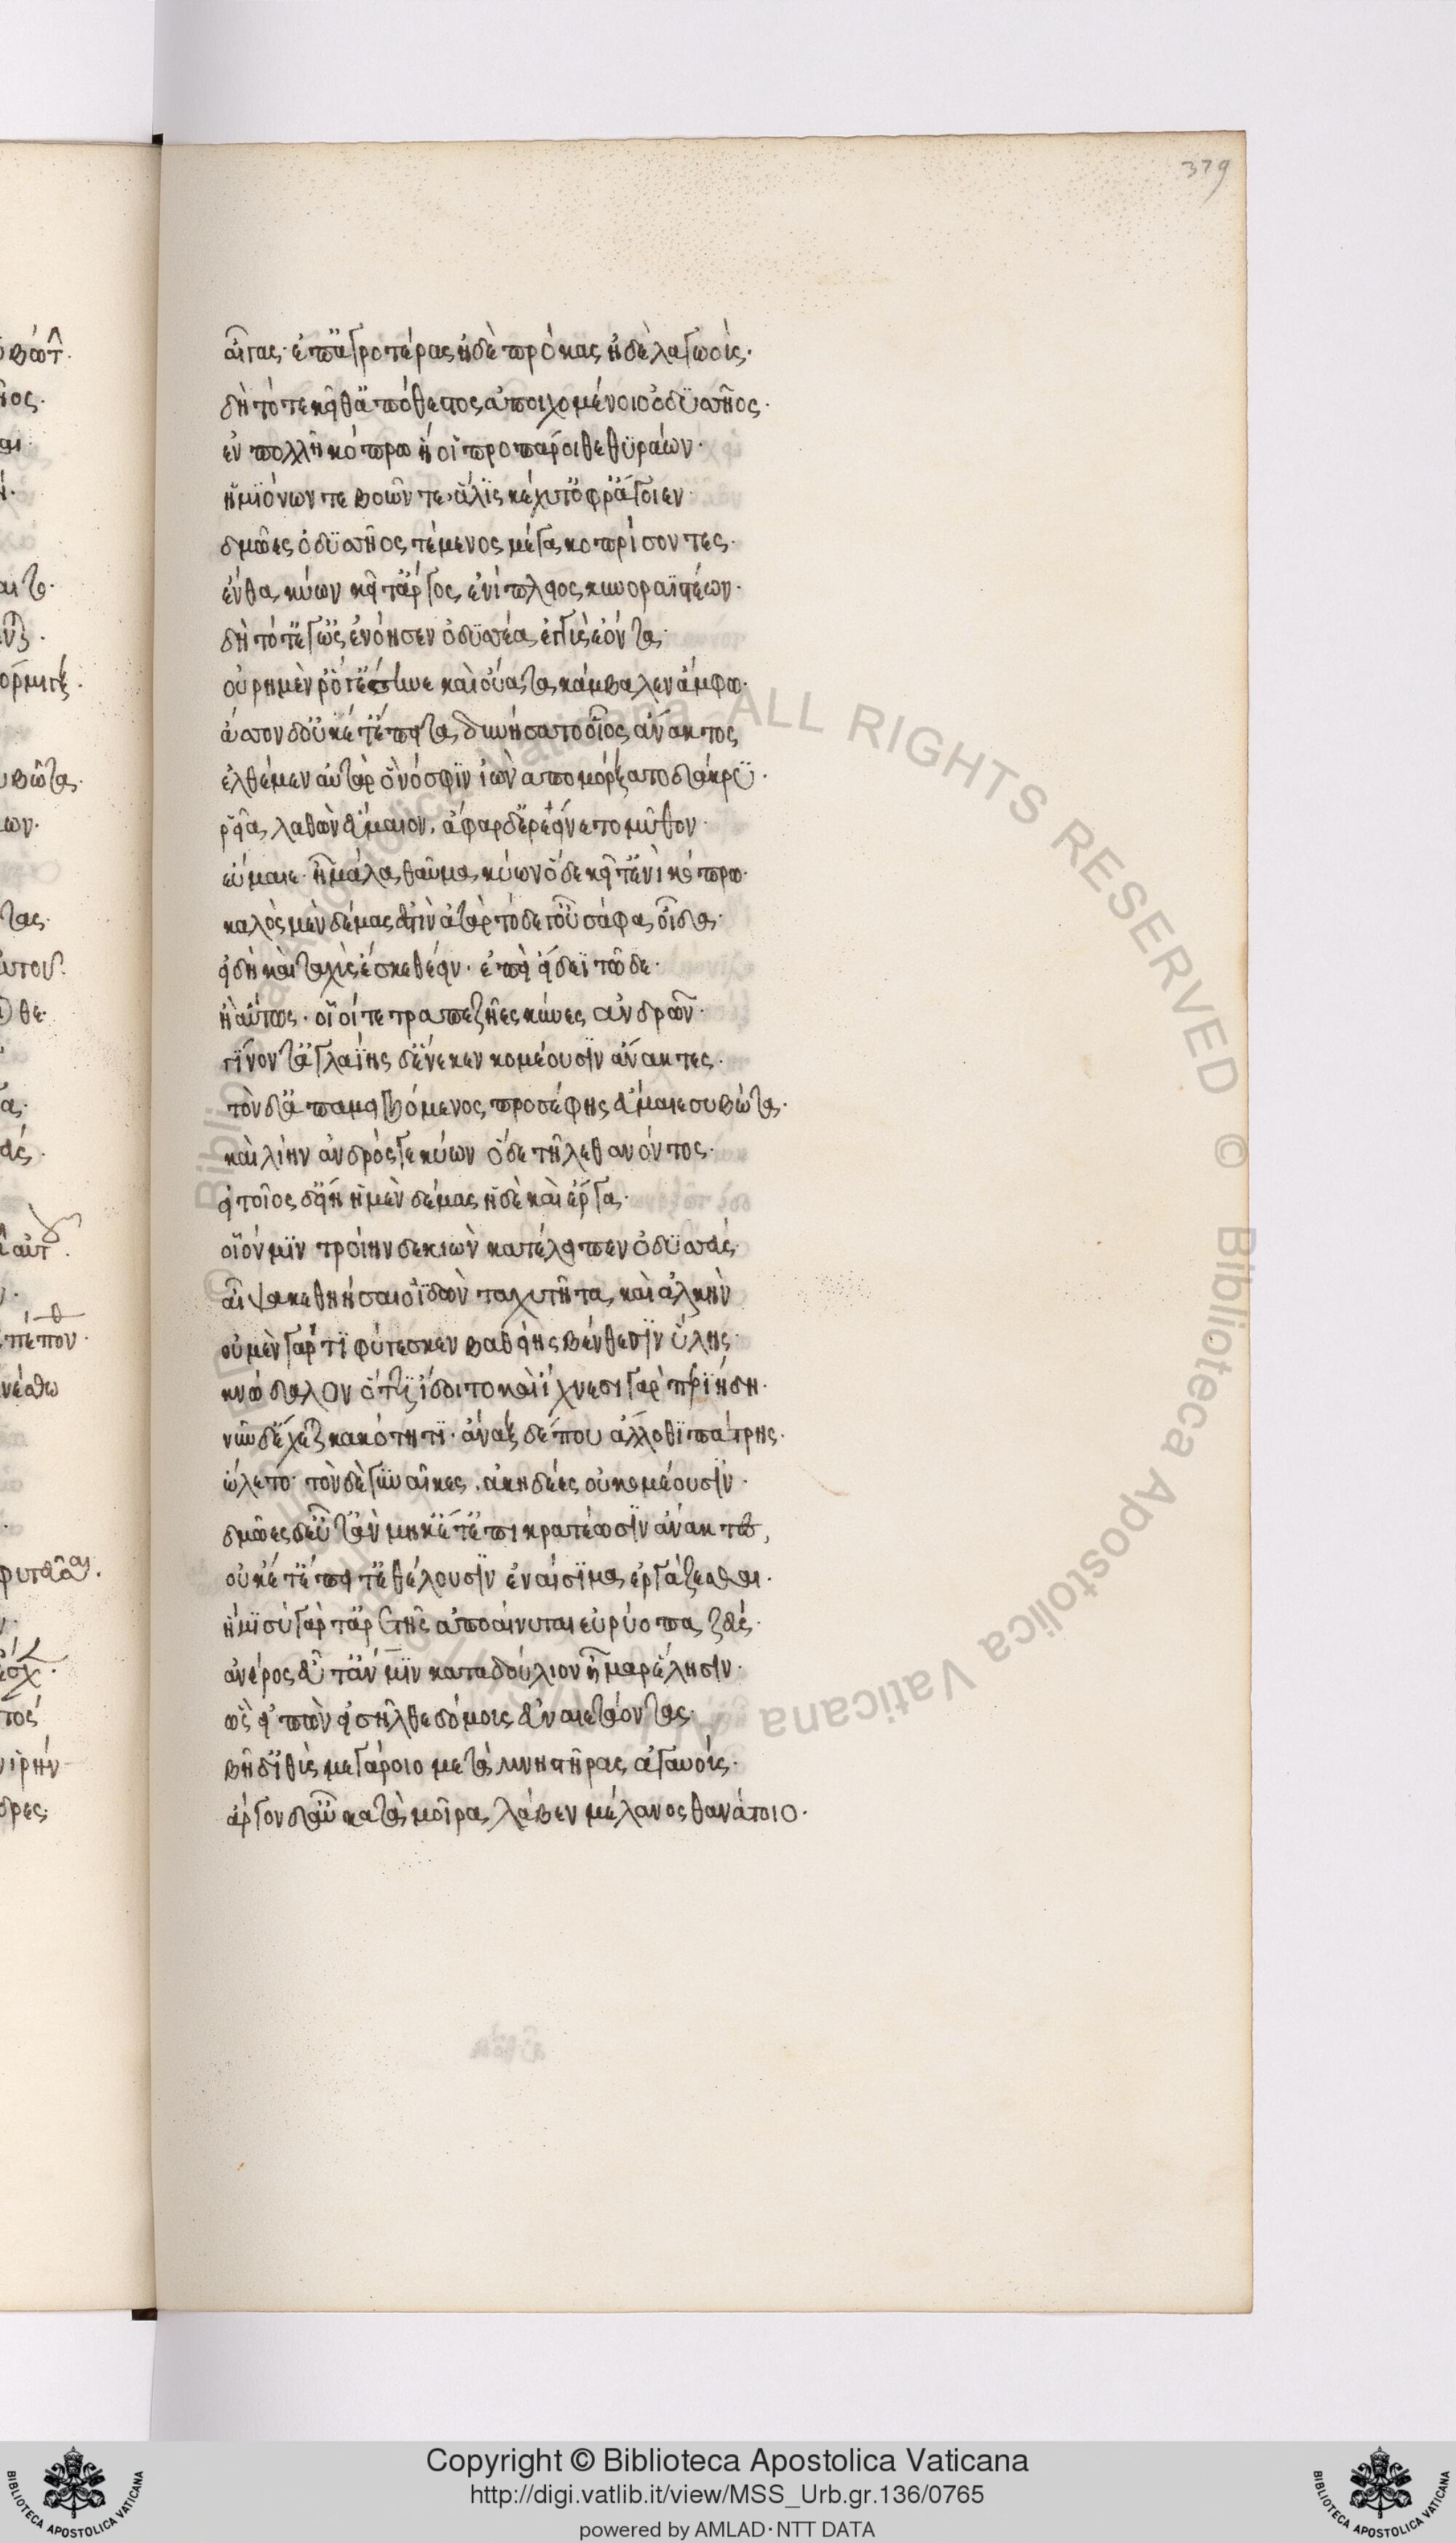 379
αἶγας· ἐπ' ἀγροτέρας ἠδὲ πρόκας ἠδὲ λαγωούς·
δὴ τότε κεῖτ' ἀπόθεστος ἀποιχομένοιο ὀδυσῆος·
ἐν πολλῆ κόπρω ἥ οἱ προπάροιθε θυράων·
ἡμιόνων τε βοῶν τε, ἅλις κέχυτ' ὄφρ' ἄγοιεν·
δμῶες ὀδυσῆος τέμενος μέγα κοπρίσοντες·
ἔνθα κύων κεῖτ' ἄργος ἐνίπλειος κυνοραιστέων·
δὴ τότε γ' ὡς ἐνόησεν ὀδυσέα ἐγγὺς ἐόντα·
οὐρῆ μὲν ῥ' ὅτ' ἔσηνε καὶ οὔατα κάμβαλεν ἄμφω·
ἆσσον δ' οὐκέτ' ἔπειτα δυνήσατο οἷος ἄνακτος
ἐλθέμεν αὐτὰρ ὃ νόσφιν ἰδὼν ἀπομόρξατο δάκρυ·
ῥεῖα λαθὼν εὔμαιον, ἄφαρ δ' ἐρεείνετο μῦθον·
εὔμαιε· ἦ μάλα θαῦμα κύων ὅδε κεῖτ' ἐνὶ κόπρω·
καλὸς μὲν δέμας ἐστὶν ἀτὰρ τόδε γ' οὐ σάφα οἶδα·
εἰ δὴ καὶ ταχὺς ἔσκε θέειν· ἐπὶ εἴδεϊ τῶδε·
ἢ αὔτως· οἷοί τε τραπεζῆες κύνες ἀνδρῶν·
γίνοντ' ἀγλαΐης δ' ἕνεκεν κομέουσιν ἄνακτες·
τὸν δ' ἀπαμειβόμενος προσέφης εὔμαιε συβῶτα·
καὶ λίην ἀνδρός γε κύων ὅδε τῆλε θανόντος·
εἰ τοῖος δ' εἴη ἠμὲν δέμας ἠδὲ καὶ ἔργα·
οἷόν μιν τροίην δε κιὼν κατέλειπεν ὀδυσεύς·
αἶψά κε θηήσαιο ἰδὼν ταχυτῆτα καὶ ἀλκὴν
οὐ μὲν γάρ τι φύγεσκεν βαθείης βένθεσιν ὕλης·
κνώδαλον ὅττι ἴδοιτο καὶ ἴχνεσι γὰρ περιήδη·
νῦν δ' ἔχεται κακότητι· ἄναξ δέ που ἄλλοθι πάτρης·
ὤλετο· τὸν δὲ γυναῖκες, ἀκηδέες οὐ κομέουσιν·
δμῶες δ' εὖτ' ἂν μηκέτ' ἐπικρατέωσιν ἄνακτες,
οὐκέτ' ἔπειτ' ἐθέλουσιν ἐναίσιμα ἐργάζεσθαι·
ἥμισυ γάρ τ' ἀρετῆς ἀποαίνυται εὐρύοπα ζεύς·
ἀνέρος εὖτ' ἄν μιν κατὰ δούλιον ἦμαρ ἕλησιν·
ὣς εἰπὼν εἰσῆλθε δόμους εὐναιετάοντας·
βῆ δ' ἰθὺς μεγάροιο μετὰ μνηστῆρας ἀγαυούς·
ἄργον δ' αὖ κατὰ μοῖρα λάβεν μέλανος θανάτοιο·
Copyright © Biblioteca Apostolica Vaticana
http://digi.vatlib.it/view/MSS_Urb.gr.136/0765
powered by AMLAD·NTT DATA